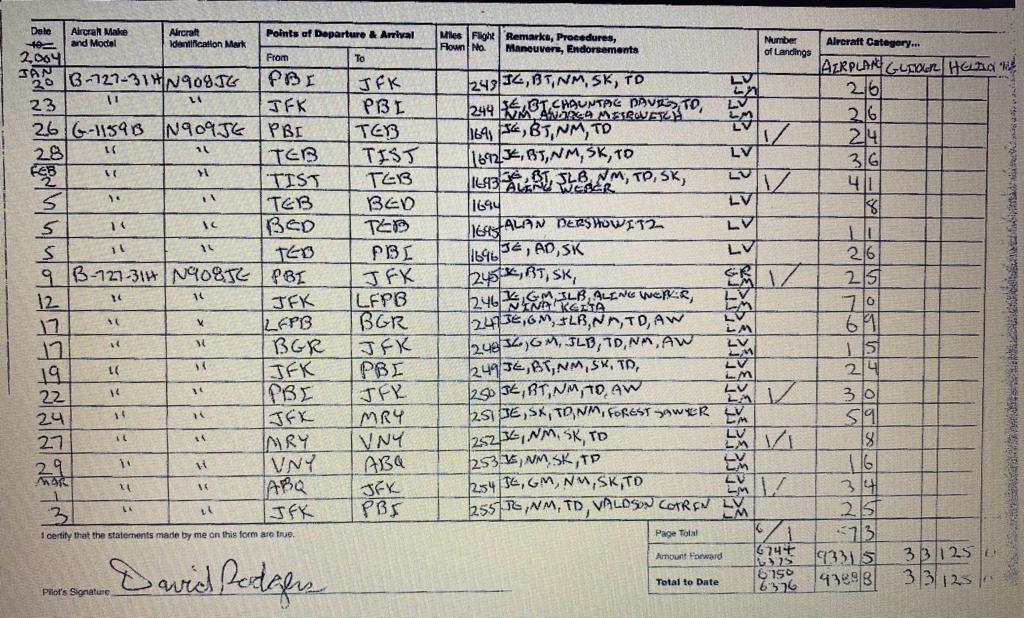 Date Aircraft Make and Model Aircraft Identification Mark Points of Departure & Arrival Miles Flown Flight No. Remarks, Procedures, Maneuvers, Endorsements Number of Landings Aircraft Category...
2004 From To AIRPLANE GLIDER
JAN 20 B-727-31H N908JE PBI JFK 243 JE, BT, NM, SK, TD LV LM 2 6
23 " " JFK PBI 244 JE, BT, CHAUNTAE DAVIES, TD, LV
NM, LM 2 6
26 G-1159B N909JE PBI TEB 1691 JE, BT, NM, TD LV 1/ 2 4
28 " " TEB TIST 1692 JE, BT, NM, SK, TD LV 3 6
FEB 2 " " TIST TEB 1693 JE, BT, JLB, NM, TD, SK, LV 1/ 4 1
ALINE WEBER
5 " " TEB BED 1694 LV 8
5 " " BED TEB 1695 ALAN DERSHOWITZ LV 1 1
5 " " TEB PBI 1696 JE, AD, SK LV 2 6
9 B-727-31H N908JE PBI JFK 245 JE, BT, SK, GR LM 1/ 2 5
12 " " JFK LFPB 246 JE, GM, JLB, ALINE WEBER, LV
NINA KEITA LM 7 0
17 " " LFPB BGR 247 JE, GM, JLB, NM, TD, AW LV LM 6 9
17 " " BGR JFK 248 JE, GM, JLB, TD, NM, AW LV LM 1 5
19 " " JFK PBI 249 JE, BT, NM, SK, TD, LV LM 2 4
22 " " PBI JFK 250 JE, BT, NM, TD, AW LV LM 1/ 3 0
24 " " JFK MRY 251 JE, SK, TD, NM, FOREST SAWYER LV LM 5 9
27 " " MRY VNY 252 JE, NM, SK, TD LV LM 1/1 8
29 " " VNY ABQ 253 JE, NM, SK, TD LV LM 1 6
MAR 1 " " ABQ JFK 254 JE, GM, NM, SK, TD LV LM 1/ 3 4
3 " " JFK PBI 255 JE, NM, TD, VALDSON COTRIN LV LM 2 5
I certify that the statements made by me on this form are true. Page Total 6/1 73
Amount Forward 6744 6375 9331 5 3 3 125
Pilot's Signature David Rodgers Total to Date 6750 6376 3 3 125